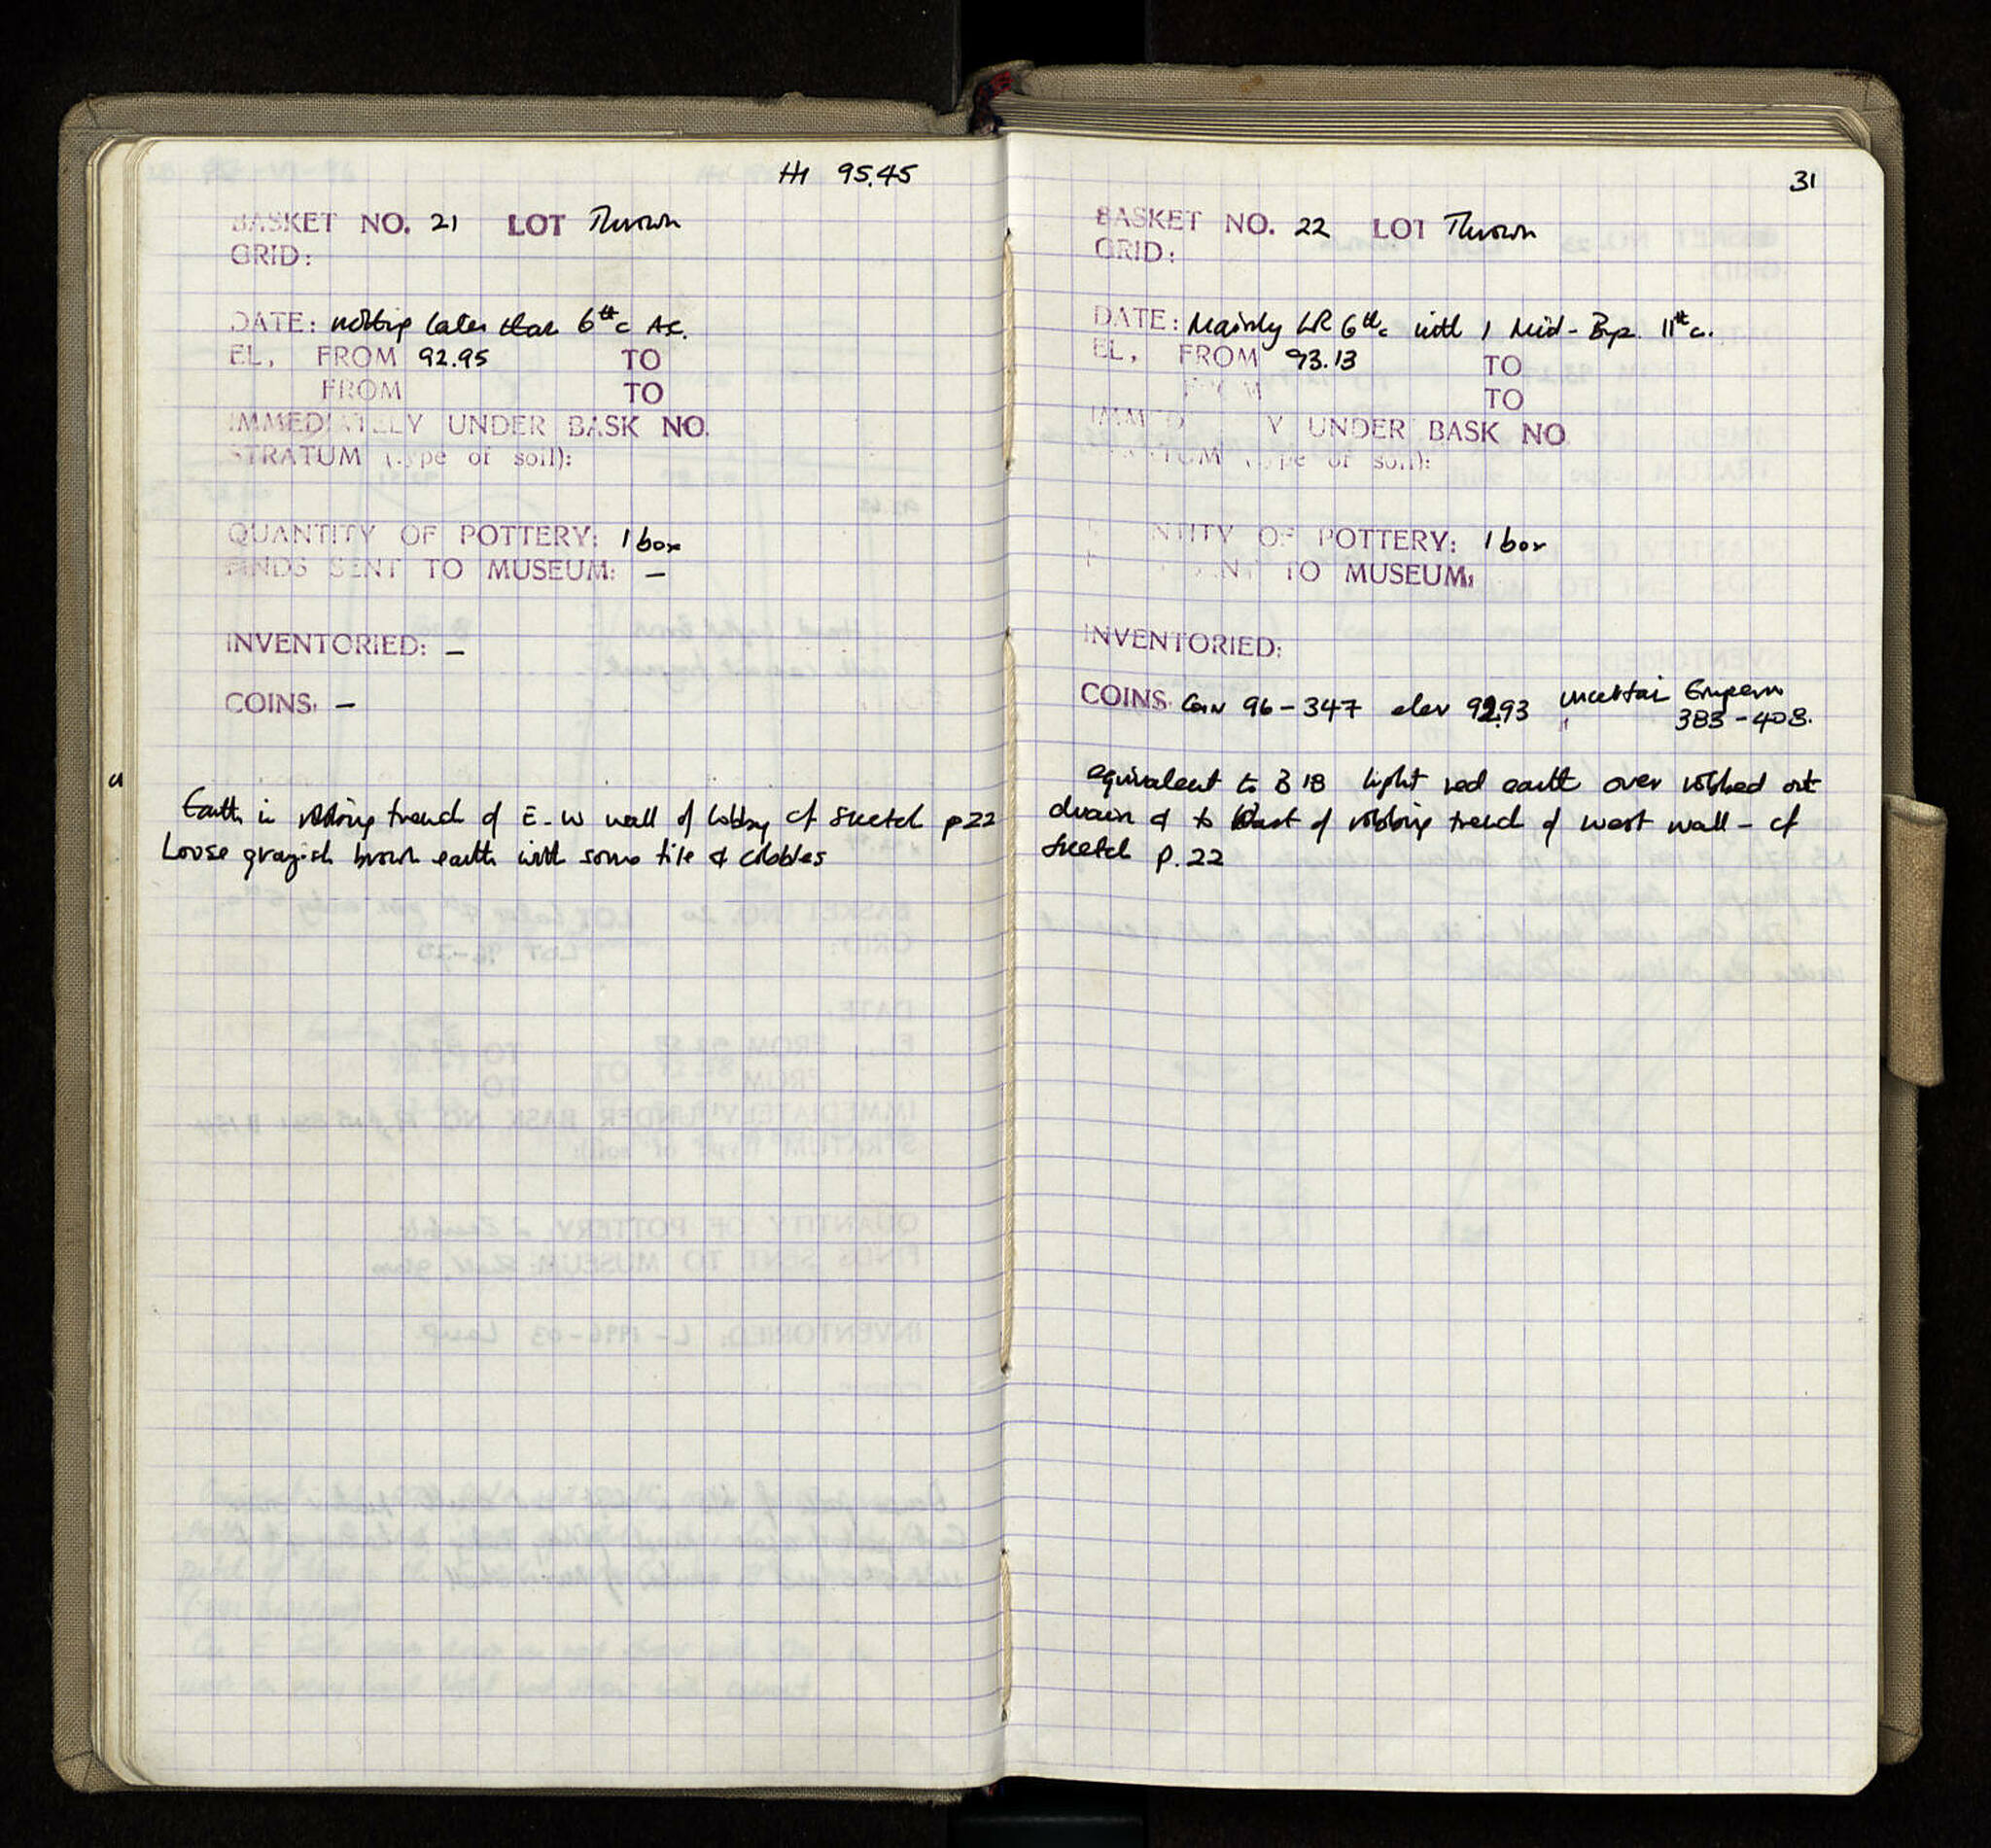 HI 95.45
BASKET NO. 21 LOT Thrown
GRID:
DATE: nothing later than 6th c AC.
EL, FROM 92.95 TO
FROM TO
IMMEDIATELY UNDER BASK NO.
STRATUM (type of soil):
QUANTITY OF POTTERY: 1 box
FINDS SENT TO MUSEUM: —
INVENTORIED: —
COINS. —
Earth in robbing trench of E-W wall of lobby cf sketch p 22
Loose grayish brown earth with some tile & cobbles
31
BASKET NO. 22 LOT Thrown
GRID:
DATE: Mainly LR 6th c with 1 Mid-Byz. 11th c.
EL, FROM 93.13 TO
FROM TO
IMMEDIATELY UNDER BASK NO
STRATUM (type of soil):
QUANTITY OF POTTERY: 1 box
FINDS SENT TO MUSEUM:
INVENTORIED:
COINS. Coin 96-347 elev 92.93 uncertain Emperor
383-408.
equivalent to B 18 light red earth over robbed out
drain & to East of robbing trench of west wall - cf
sketch p. 22